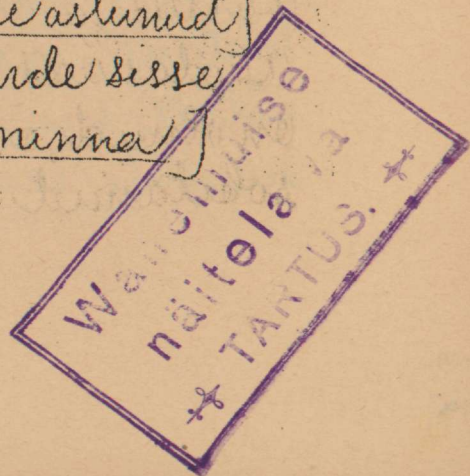 astunud]
sisse
minna]
Wanemuise
näitelava
TARTUS.